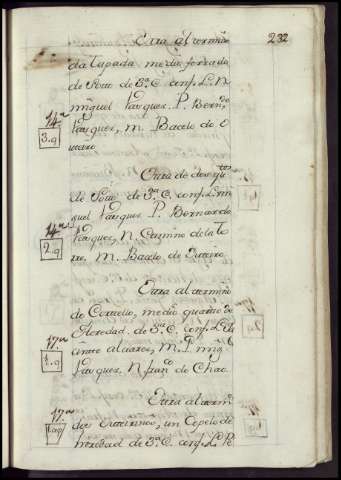 232
Otra al termino
da Tapada medio ferrado
de Soto de 3ª C. conf. L. N.
miguel Vazquez. P. Berndo
14rs
Vazquez, M. Bacelo de O
3.q
uteiro
Otra de dos qtos
de Soto de 3ª C. conf. L. mi
guel Vazquez P. Bernardo
14rs
Vazquez, N. Camino de la To
2.q
rre, M. Bacelo de Outeiro.
Otra al termino
de Cortello, medio quarto de
Heredad de 3ª C. conf. L. Al
17rs
varo alvarez, M. P. migl
1.q
Vazquez N. franco de Chao
Otra al term
17rs
dos Outeirinos, un Copelo de
heredad de 3ª C. conf. L. Pe